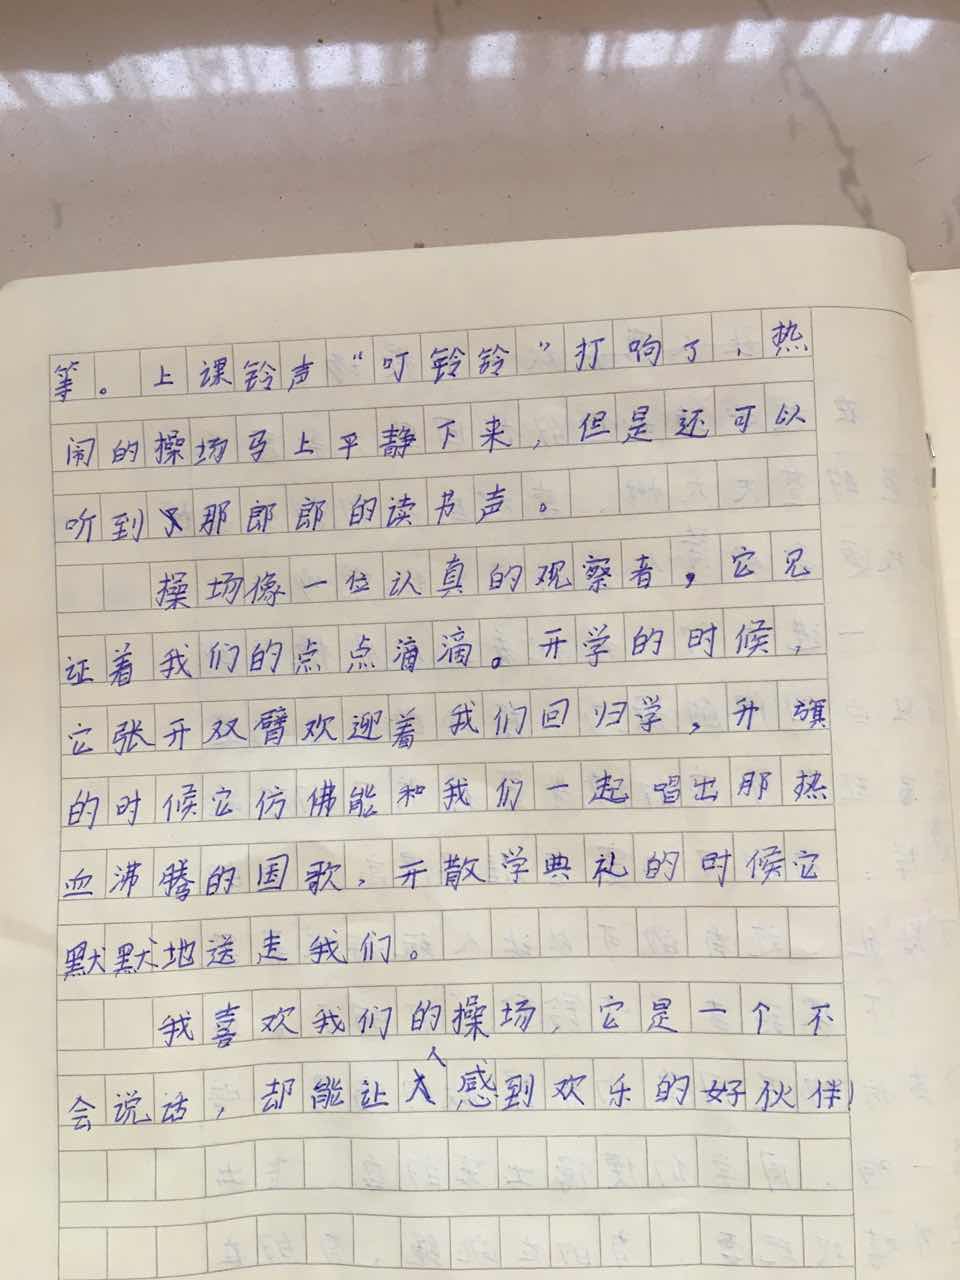 等。上课铃声“叮铃铃”打响了，热
闹的操场马上平静下来，但是还可以
听到那郎郎的读书声。
操场像一位认真的观察者，它见
证着我们的点点滴滴。开学的时候，
它张开双臂欢迎着我们回归学，升旗
的时候它仿佛能和我们一起唱出那热
血沸腾的国歌，开散学典礼的时候它
默默地送走我们。
我喜欢我们的操场，它是一个不
会说话，却能让人感到欢乐的好伙伴！